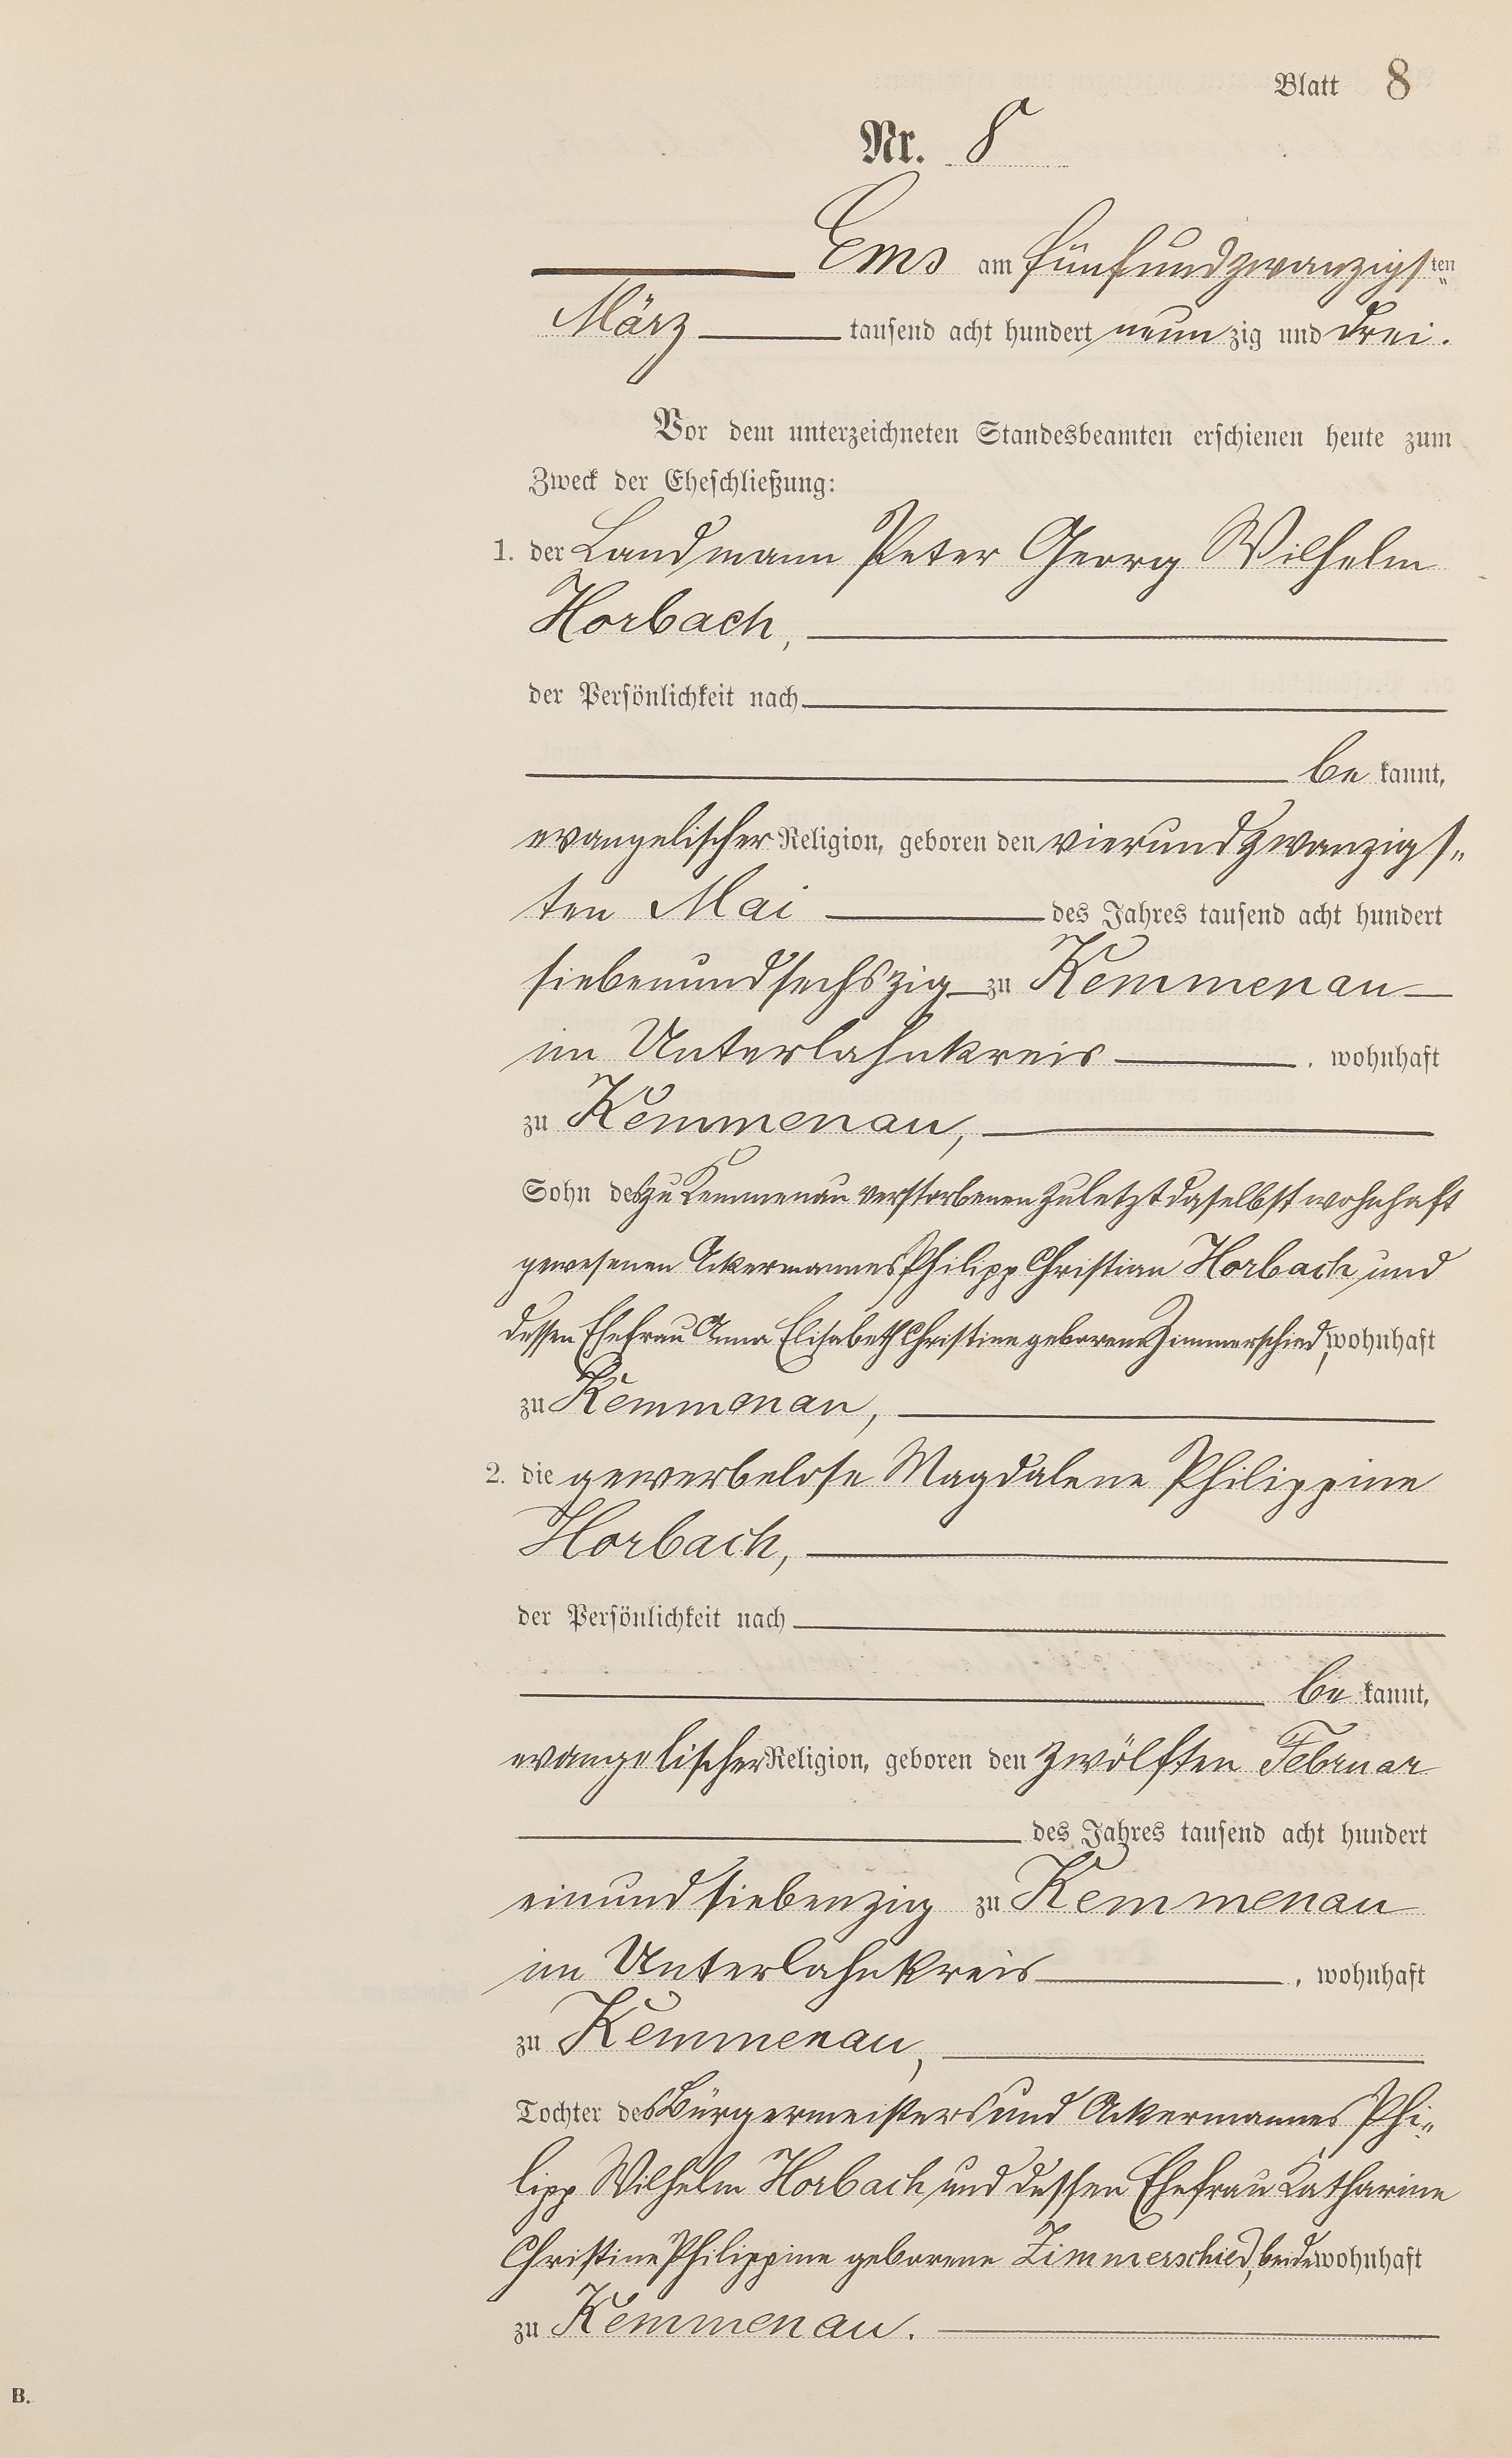 Blatt 8
Nr. 8
Ems am fünfundzwanzigsten
März tausend acht hundert neunzig und drei.
Vor dem unterzeichneten Standesbeamten erschienen heute zum
Zweck der Eheschließung:
1. der Landmann Peter Georg Wilhelm
Horbach,
der Persönlichkeit nach
be kannt,
evangelischer Religion, geboren den vierundzwanzigs„
ten Mai des Jahres tausend acht hundert
siebenundsechszig zu Kemmenau
im Unterlahnkreis, wohnhaft
zu Kemmenau,
Sohn des zu Kemmenau verstorbenen zuletzt daselbst wohnhaft
gewesenen Ackermannes Philipp Christian Horbach und
dessen Ehefrau Anna Elisabeth Christine geborene Zimmerschied, wohnhaft
zu Kemmenau,
2. die gewerbelose Magdalene Philippine
Horbach,
der Persönlichkeit nach
be kannt,
evangelischer Religion, geboren den zwölften Februar
des Jahres tausend acht hundert
einundsiebenzig zu Kemmenau
im Unterlahnkreis, wohnhaft
zu Kemmenau,
Tochter des Bürgermeisters und Ackermannes Phi„
lipp Wilhelm Horbach und dessen Ehefrau Katharine
Christine Philippine geborene Zimmerschied, beide wohnhaft
zu Kemmenau.
B.